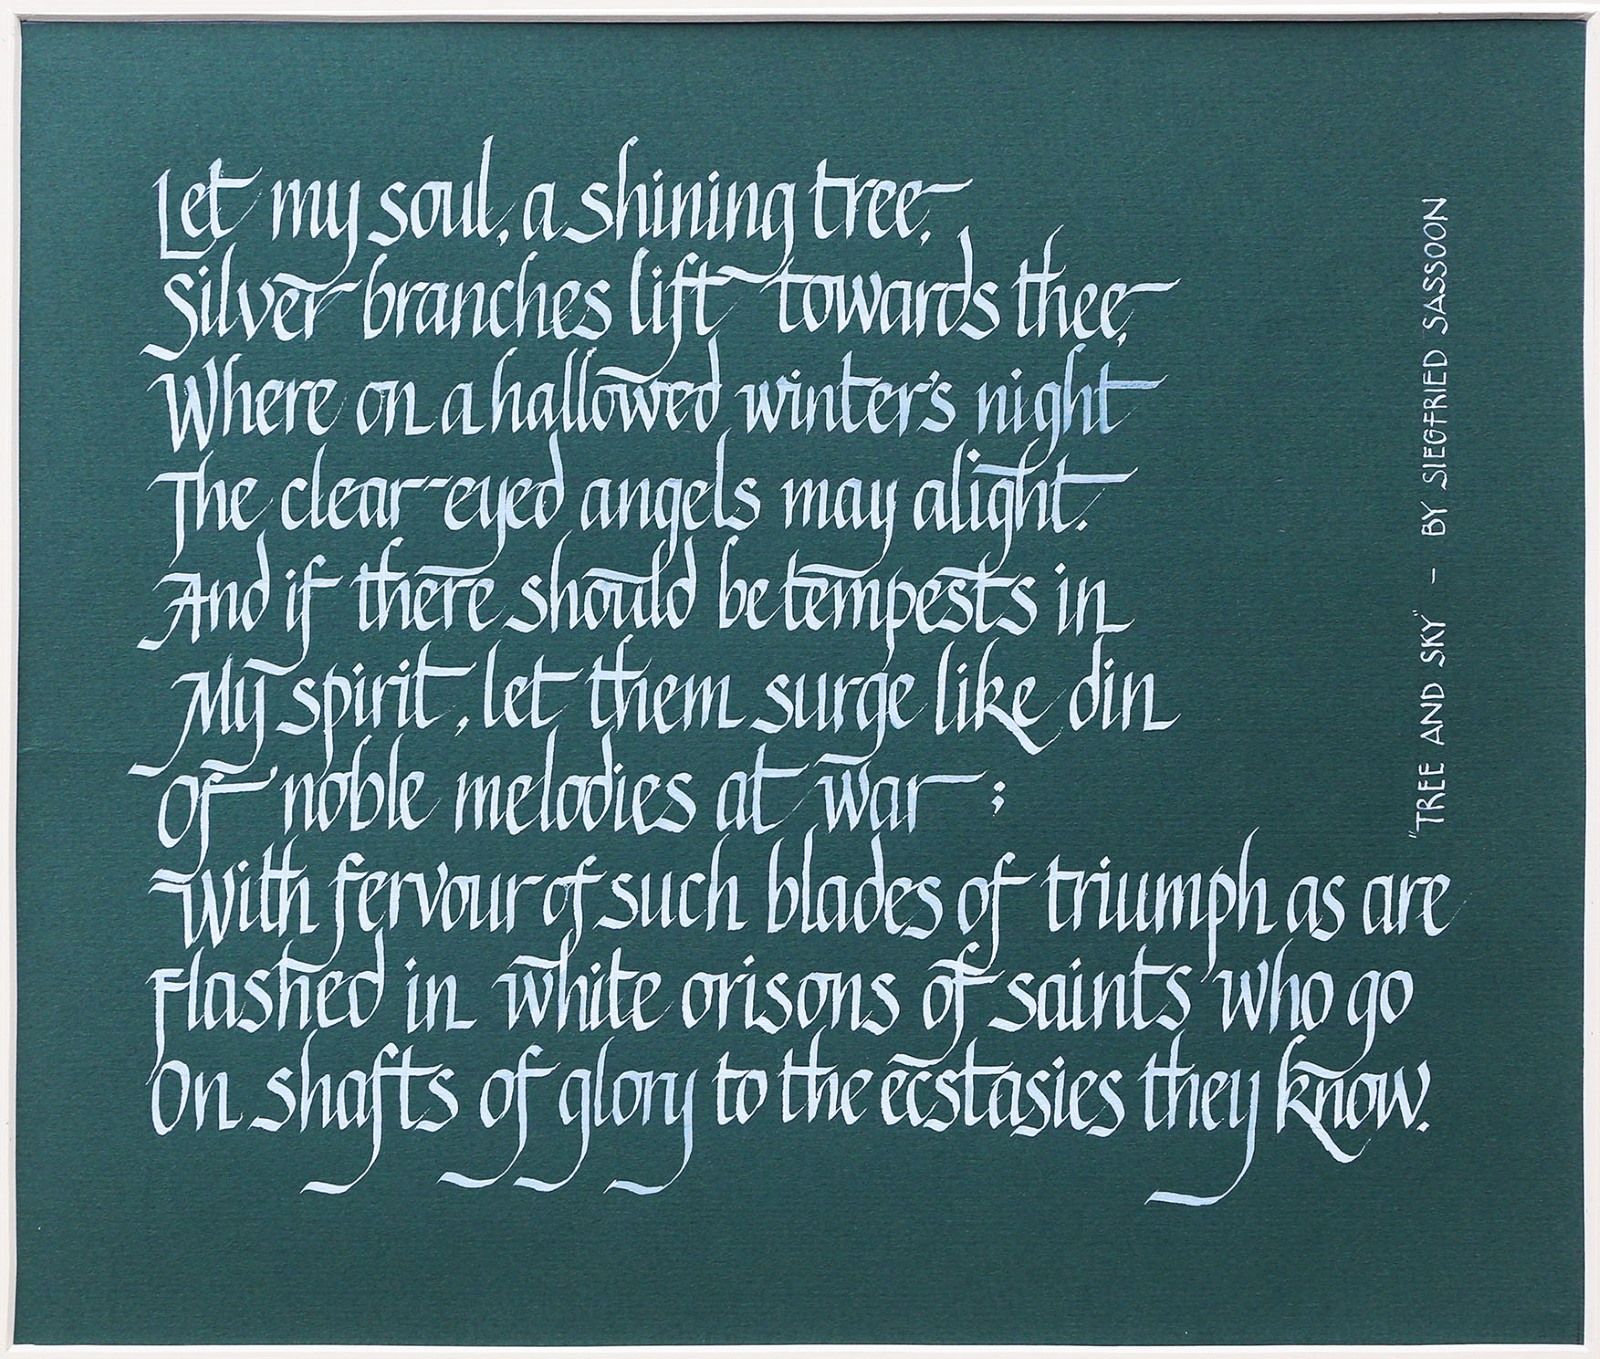 Let my soul, a shining tree,
Silver branches lift towards thee,
Where on a hallowed winter's night
The clear-eyed angels may alight.
And if there should be tempests in
My spirit, let them surge like din
Of noble melodies at war;
With fervour of such blades of triumph as are
Flashed in white orisons of saints who go
On shafts of glory to the ecstasies they know.
"TREE AND SKY" - BY SIEGFRIED SASSOON